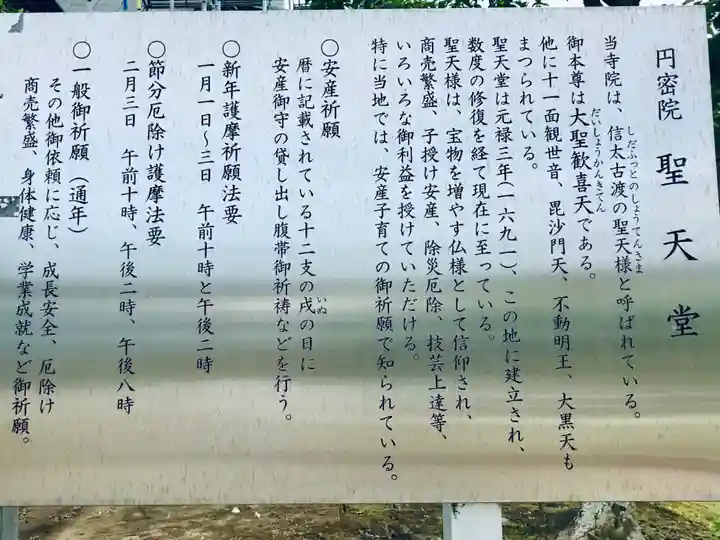 円密院 聖天堂
当寺院は、信太古渡の聖天様と呼ばれている。
しだふっとのしょうてんさま
御本尊は大聖歓喜天である。
だいしょうかんきてん
他に十一面観世音、毘沙門天、不動明王、大黒天も
まつられている。
聖天堂は元禄三年(一六九一)、この地に建立され、
数度の修復を経て現在に至っている。
聖天様は、宝物を増やす仏様として信仰され、
商売繁盛、子授け安産、除災厄除、技芸上達等、
いろいろな御利益を授けていただける。
特に当地では、安産子育ての御祈願で知られている。
〇安産祈願
暦に記載されている十二支の戌の日に
いぬ
安産御守の貸し出し腹帯御祈祷などを行う。
〇新年護摩祈願法要
一月一日～三日 午前十時と午後二時
〇節分厄除け護摩法要
二月三日 午前十時、午後二時、午後八時
〇一般御祈願(通年)
その他御依頼に応じ、成長安全、厄除け
商売繁盛、身体健康、学業成就など御祈願。